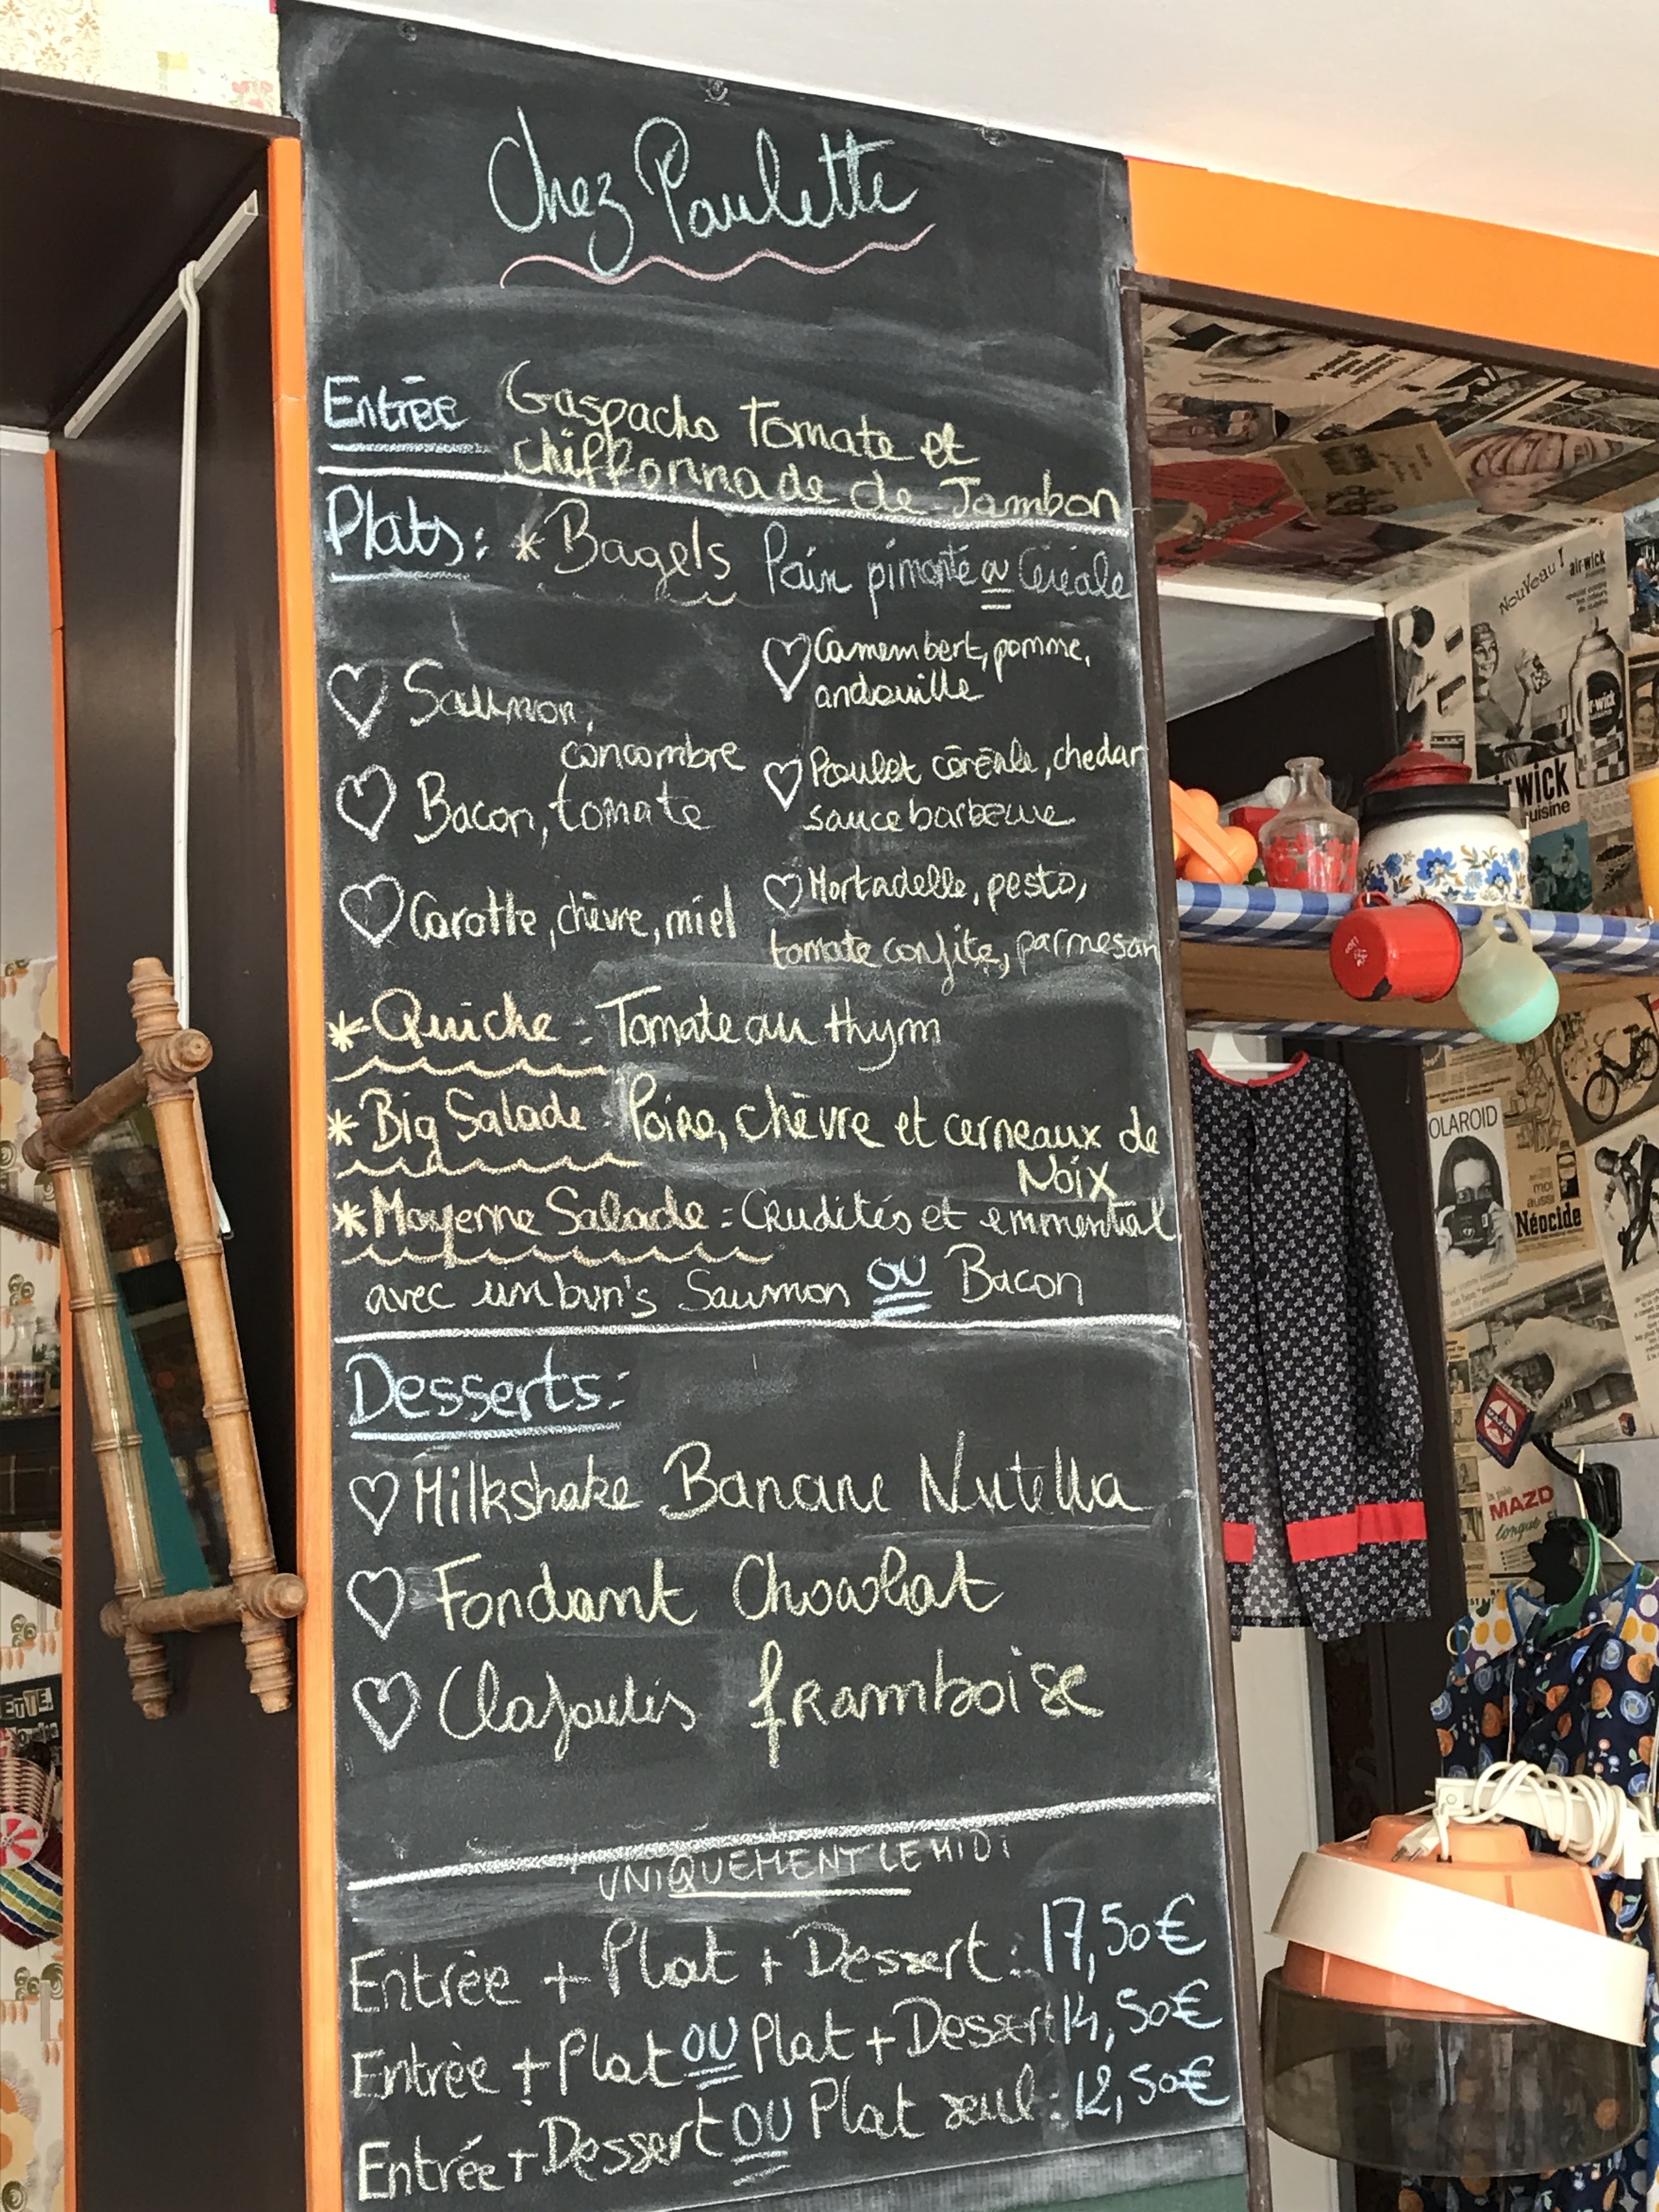 Chez Paulette
Entrée Gaspacho Tomate et
chiffonnade de Jambon
Plats: * Bagels Pain pimenté ou Céréale
Saumon,
concombre
Bacon, tomate
Carotte, chèvre, miel
Camembert, pomme,
andouille
Poulet céréale, chedar
sauce barbecue
Mortadelle, pesto,
tomate confite, parmesan
* Quiche : Tomate au thym
* Big Salade : Poire, chèvre et cerneaux de
Noix
* Moyenne Salade : Crudités et emmental
avec un bun's Saumon OU Bacon
Desserts:
Milkshake Banane Nutella
Fondant Chocolat
Clafoutis framboise
UNIQUEMENT LE MIDI
Entrée + Plat + Dessert : 17,50€
Entrée + Plat OU Plat + Dessert 14,50€
Entrée + Dessert OU Plat seul : 12,50€
Nouveau! air-wick
air-wick
WICK
cuisine
OLAROID
moi
aussi
Néocide
MAZD
longue
ETTE,